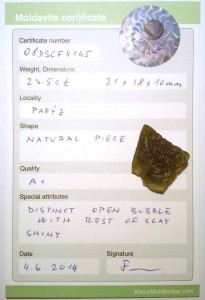 Moldavite certificate
Certificate number
08DSCF4145
Weight, Dimensions
23.5ct 21x18x10mm
Locality
Shape
NATURAL PIECE
Quality
A+
Special attributes
DISTINCT OPEN BUBBLE
WITH REST OF CLAY
SHINY
Date
Signature
4.6.2014
AboutMoldavites.com